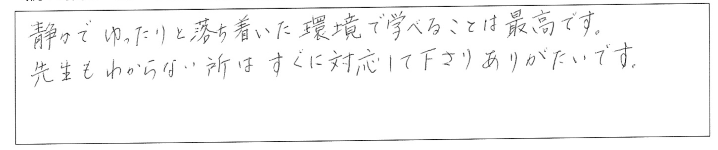 静かで ゆったりと落ち着いた 環境で学べることは 最高です。
先生も わからない 所は すぐに対応して下さり ありがたいです。